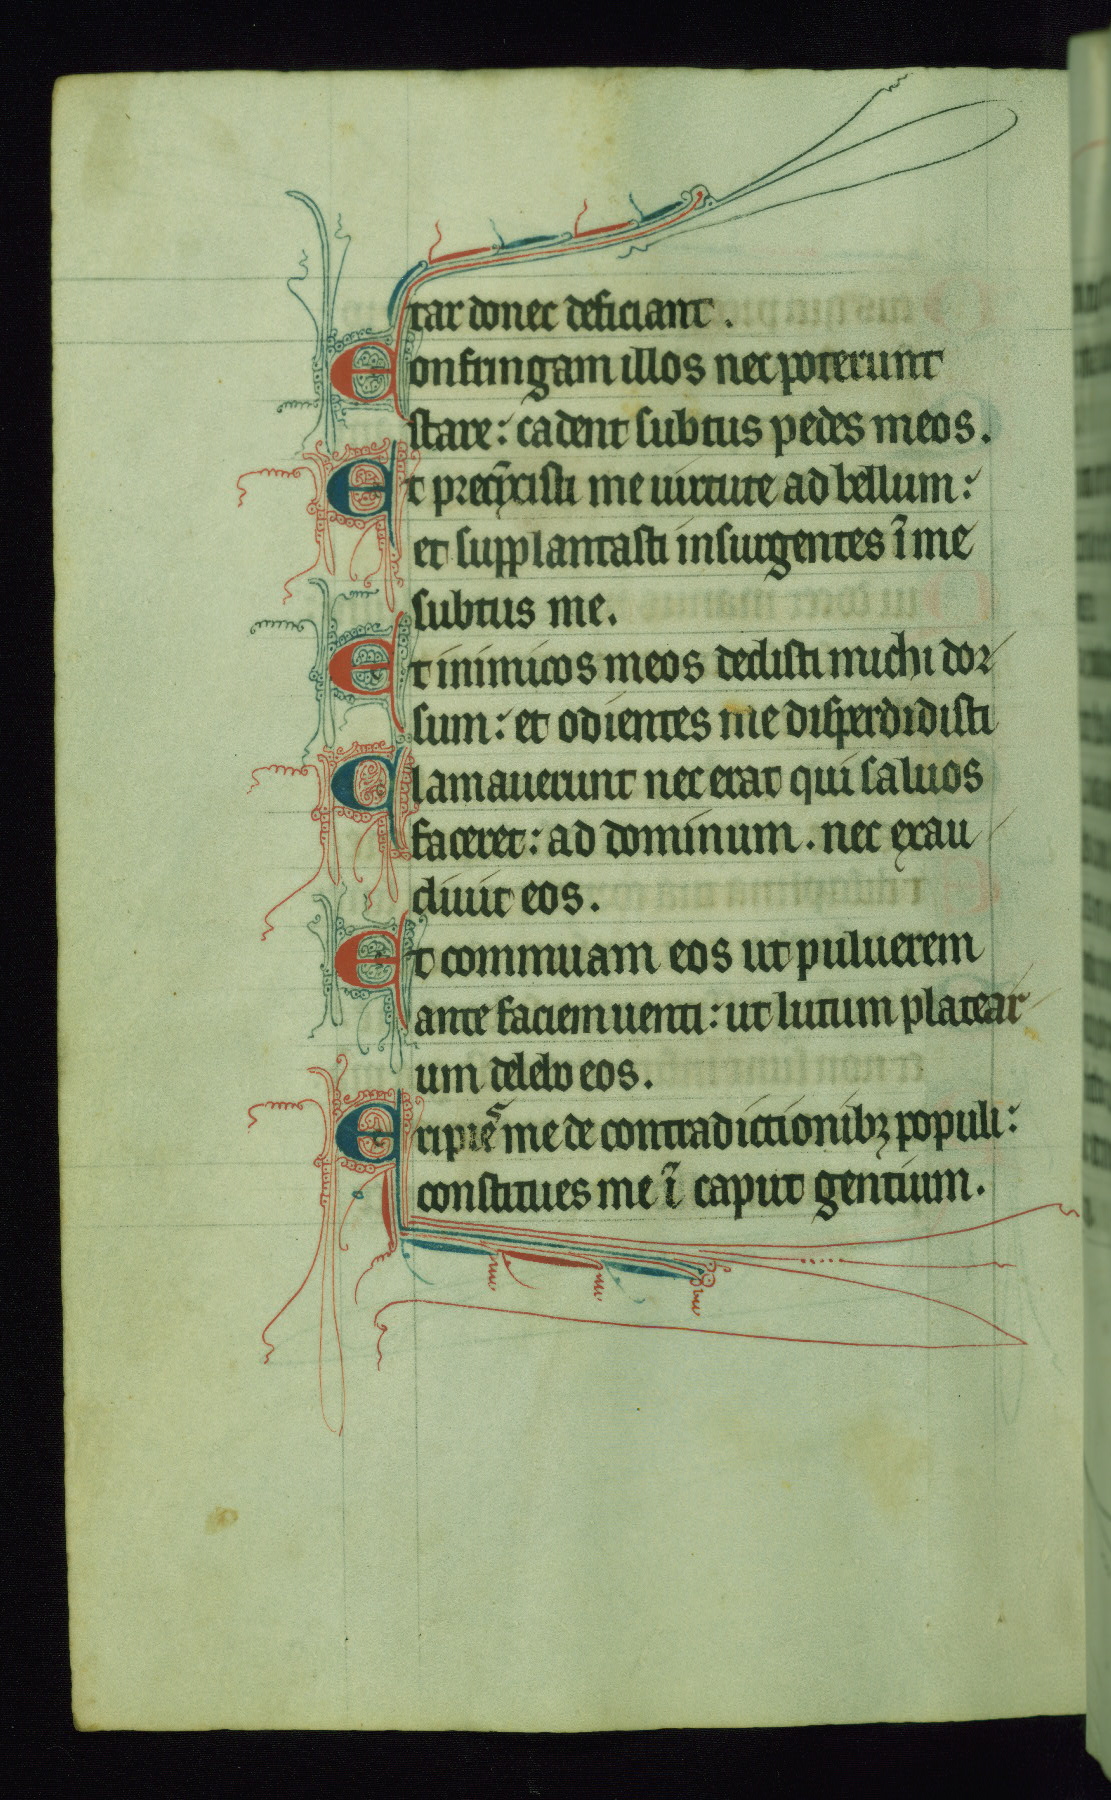 tar donec deficiant.
Confringam illos nec poterunt
stare: cadent subtus pedes meos.
Et precīxisti me uirtute ad bellum:
et supplantasti insurgentes ī me
subtus me.
Et inimicos meos dedisti michi dor
sum: et odientes me disperdidisti
Clamauerunt nec erat qui saluos
faceret: ad dominum. nec exau
diuit eos.
Et commuam eos ut puluerem
ante faciem uenti: ut lutum platear
um delebo eos.
Eripies me de contradictionibꝫ populi:
constitues me ī caput gentium.